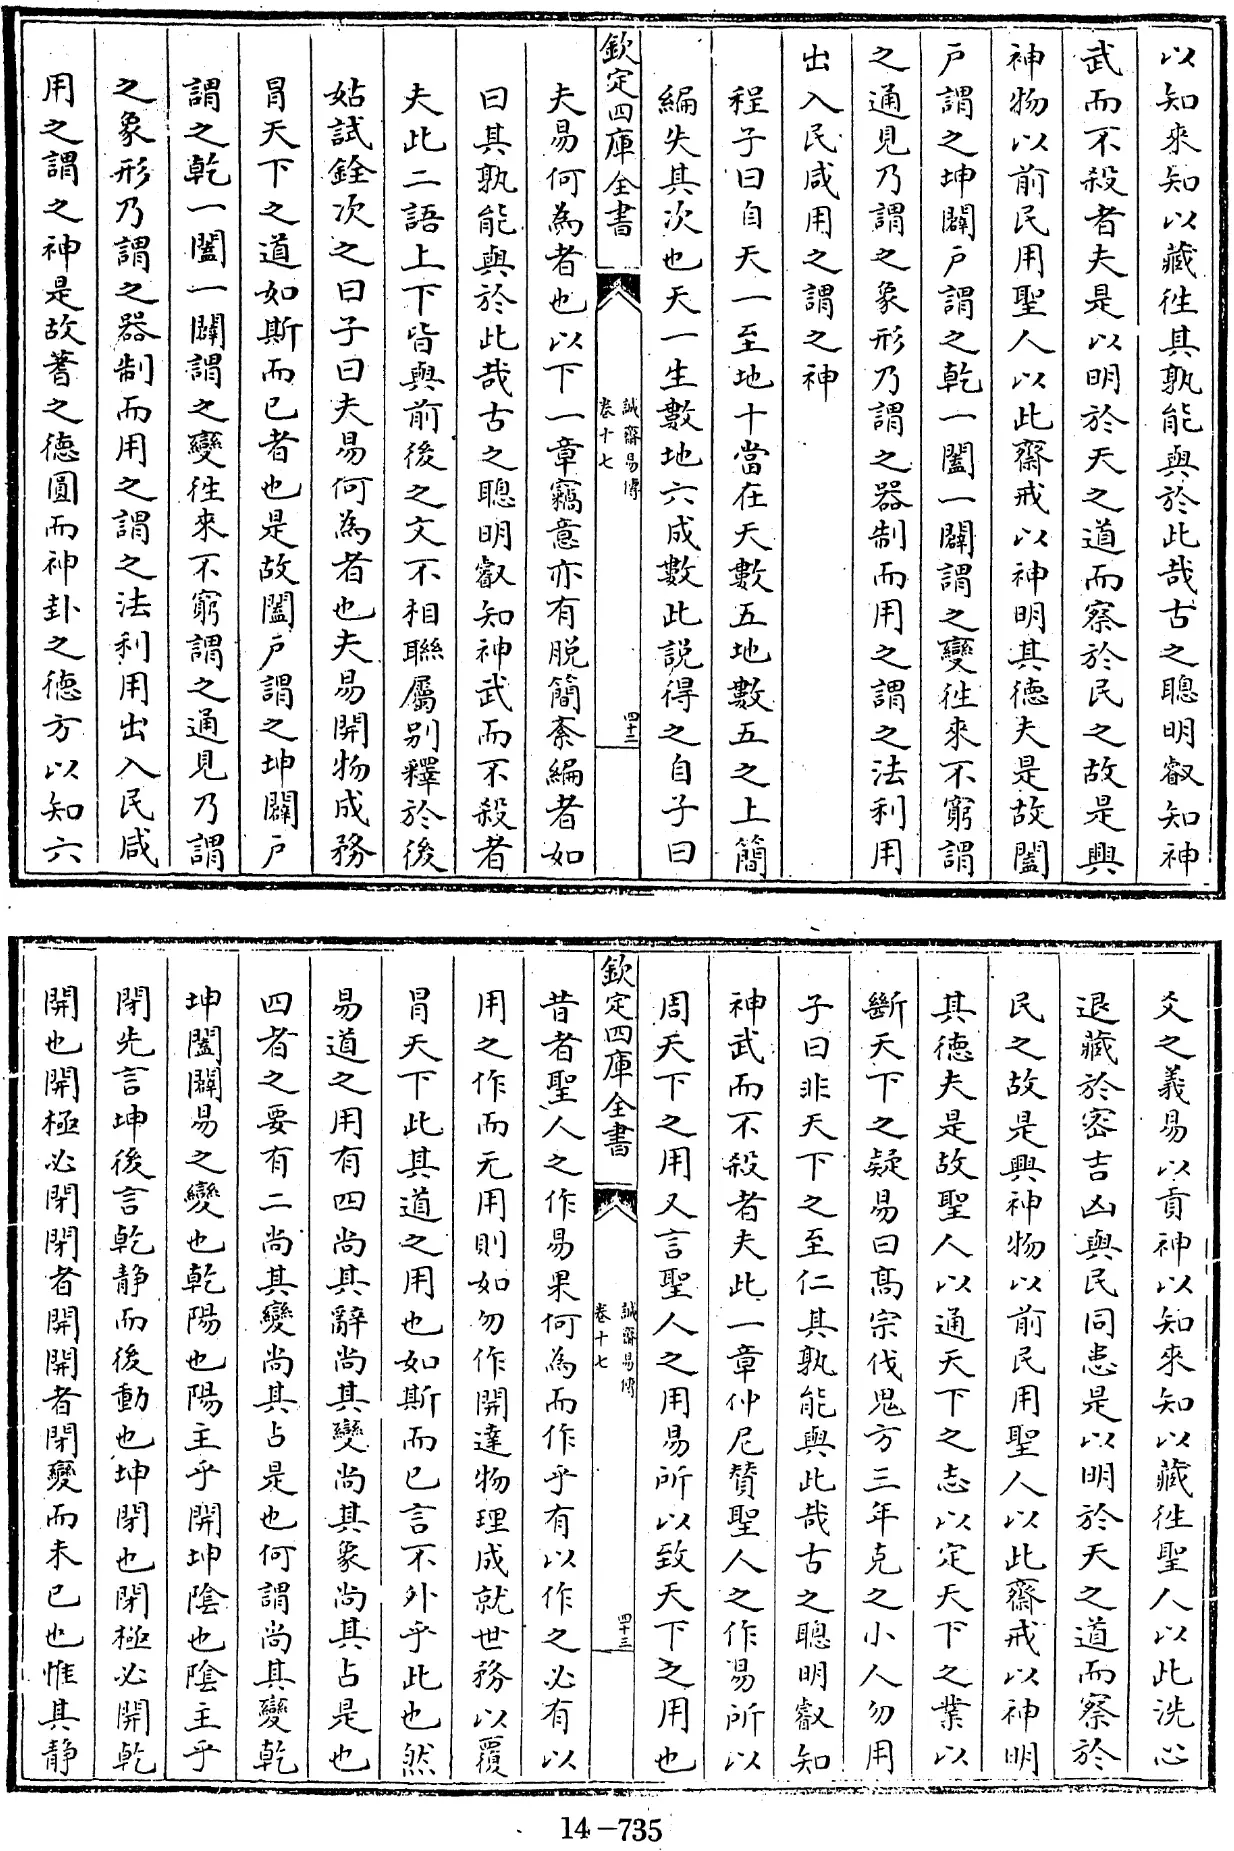 以知來知以藏徃其孰能與於此哉古之聰明叡知神
武而不殺者夫是以明於天之道而察於民之故是興
神物以前民用聖人以此齋戒以神明其德夫是故闔
戸謂之坤闢戸謂之乾一闔一闢謂之變徃來不窮謂
之通見乃謂之象形乃謂之器制而用之謂之法利用
出入民咸用之謂之神
程子曰自天一至地十當在天數五地數五之上簡
編失其次也天一生數地六成數此説得之自子曰
欽定四庫全書
誠齋易傳
卷十七
四十二
夫易何為者也以下一章竊意亦有脱簡紊編者如
曰其孰能與於此哉古之聰明叡知神武而不殺者
夫此二語上下皆與前後之文不相聯屬别釋於後
姑試銓次之曰子曰夫易何為者也夫易開物成務
冐天下之道如斯而已者也是故闔戸謂之坤闢戸
謂之乾一闔一闢謂之變徃來不窮謂之通見乃謂
之象形乃謂之器制而用之謂之法利用出入民咸
用之謂之神是故蓍之德圓而神卦之德方以知六
爻之義易以貢神以知來知以藏徃聖人以此洗心
退藏於密吉凶與民同患是以明於天之道而察於
民之故是興神物以前民用聖人以此齋戒以神明
其德夫是故聖人以通天下之志以定天下之業以
斷天下之疑易曰髙宗伐鬼方三年克之小人勿用
子曰非天下之至仁其孰能與此哉古之聰明叡知
神武而不殺者夫此一章仲尼賛聖人之作易所以
周天下之用又言聖人之用易所以致天下之用也
欽定四庫全書
誠齋易傳
卷十七
四十三
昔者聖人之作易果何為而作乎有以作之必有以
用之作而无用則如勿作開達物理成就世務以覆
冐天下此其道之用也如斯而已言不外乎此也然
易道之用有四尚其辭尚其變尚其象尚其占是也
四者之要有二尚其變尚其占是也何謂尚其變乾
坤闔闢易之變也乾陽也陽主乎開坤陰也陰主乎
閉先言坤後言乾静而後動也坤閉也閉極必開乾
開也開極必閉閉者開開者閉變而未已也惟其静
14-735